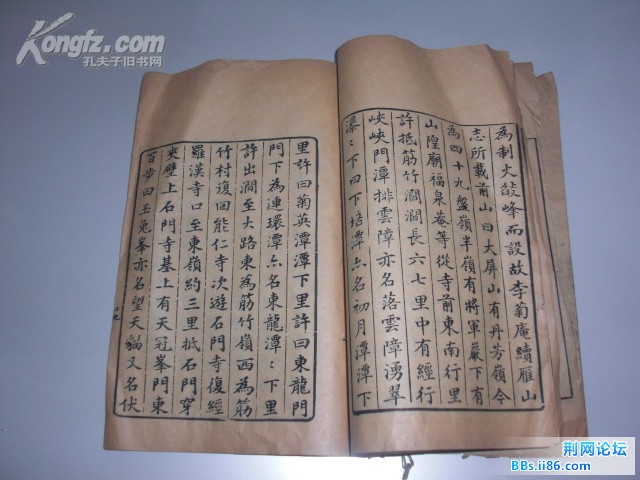 Kongfz.com
孔夫子旧书网
為制火燄峰而設故李菊庵續雁山
志所載前山曰大屏山有丹芳嶺今
為四十九盤嶺半嶺有將軍巖下有
山隍廟福泉菴等從寺前東南行里
許抵筋竹澗澗長六七里中有經行
峽峽門潭排雲障亦名落雲障湧翠
瀑〻下曰下培潭亦名初月潭潭下
里許曰菊英潭潭下里許曰東龍門
門下為連環潭亦名東龍潭〻下里
許出澗至大路東為筋竹嶺西為筋
竹村復回能仁寺次遊石門寺復經
羅漢寺口至東嶺約三里抵石門穿
夾壁上石門寺基上有天冠峯門東
百步曰玉兔峯亦名望天猫又名伏
荆网论坛
BBs.ii86.com